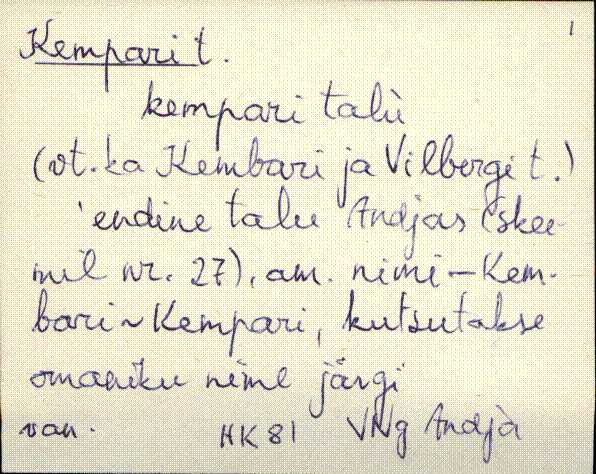 1
Kempari t.
kempari talù
(vt. ka Kembari ja Vilbergi t.)
'endine talu Andjas (skee-
mil nr. 27), am. nimi – Kem-
bari ~ Kempari, kutsutakse
omaniku nime järgi
van. HK 81 VNg Andjà